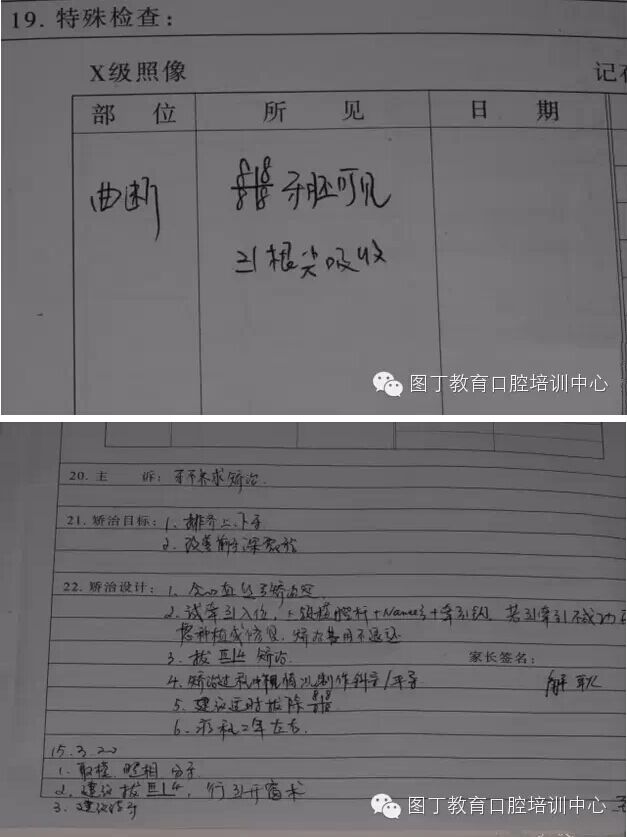 19. 特殊检查:
X级照像
记在
部 位 所 见 日 期
曲断
8 8 牙胚可见
8 8
2| 根尖吸收
图丁教育口腔培训中心
20. 主 诉: 牙不齐求矫治.
21. 矫治目标: 1. 排齐上、下牙
2. 改善前牙深覆
22. 矫治设计: 1.
2. 试牵引入位, 上颌横腭杆+Nance弓+牵引钩, 若3|牵引不成功
需种植或修复, 矫治费用不退还
3. 拔 4 矫治.
家长签名:
4. 矫治过程中视情况制作斜导/平导
5. 建议适时拔除 8 8
8 8
6. 疗程2年左右.
15.3.20
1. 取模. 照相. 分牙
2. 建议拔 4, 行3|开窗术
3. 建议洁牙
图丁教育口腔培训中心